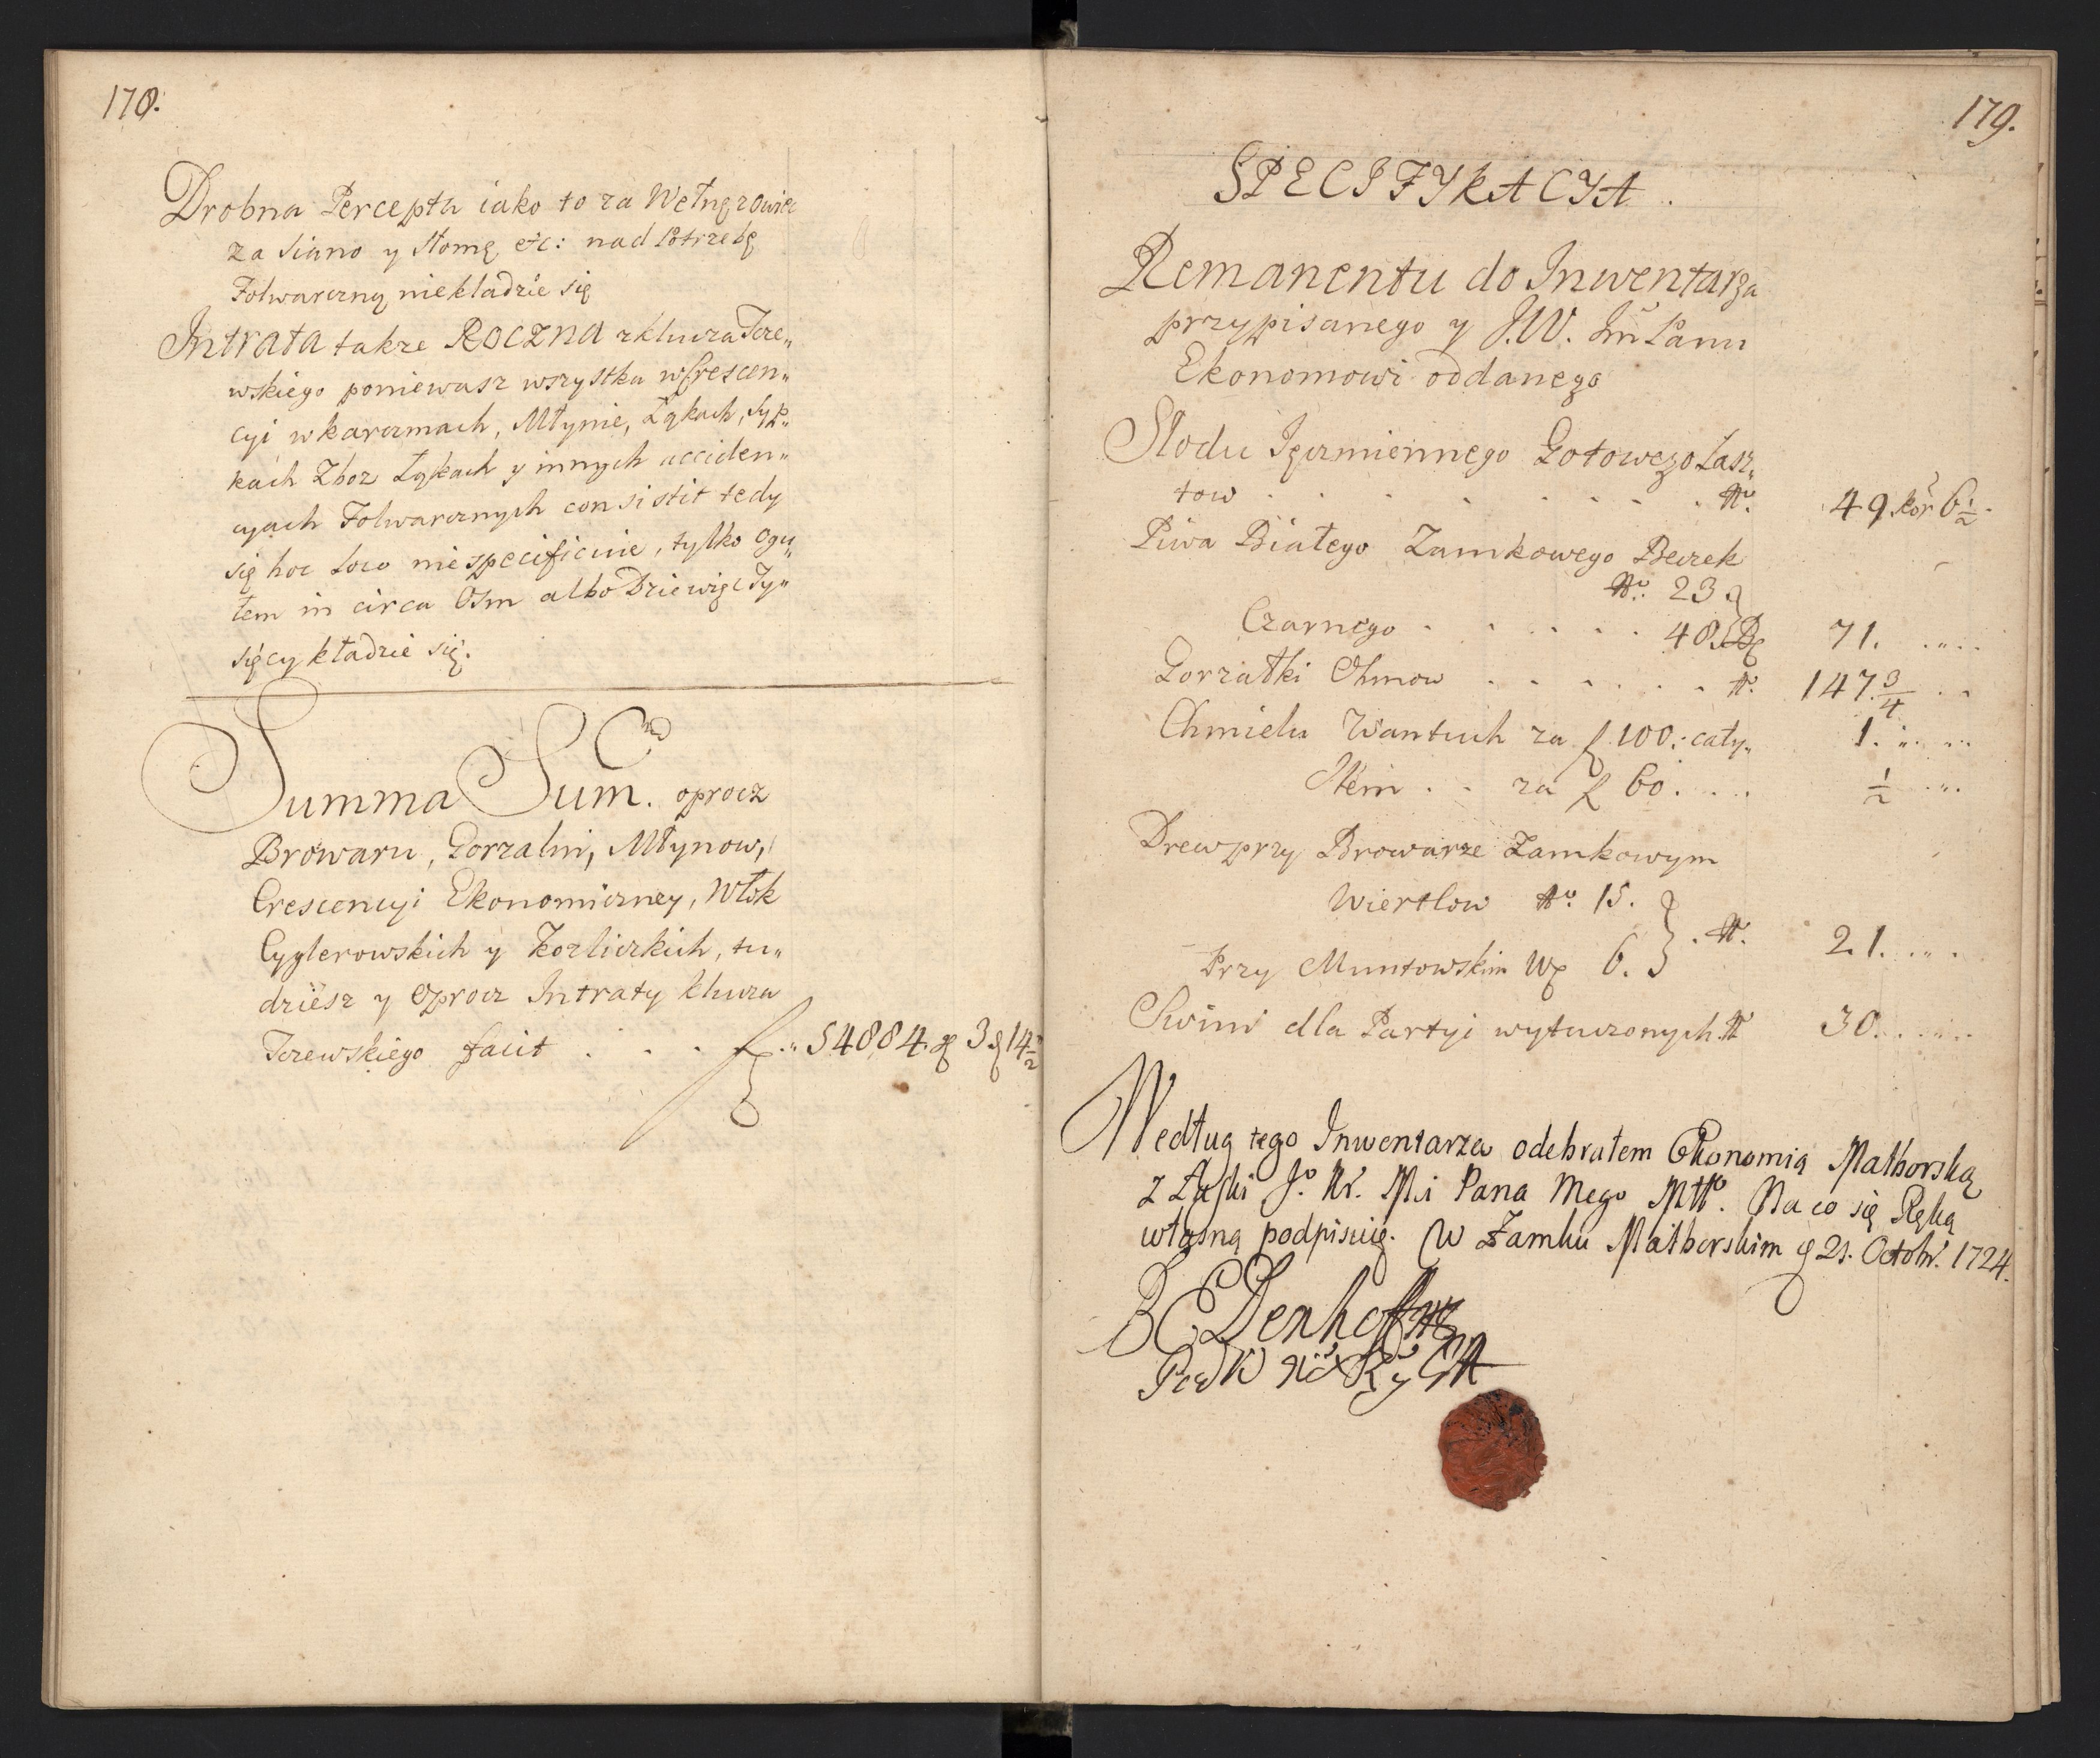 178.
Drobna Percepta iako to za Wełnę zowiec
za Siano y Słomę etc: nad Potrzebę
Folwarczną niekladzie się
Intrata takze ROCZNA z klucza Tcze„
wskiego poniewasz wszystka w Crescen„
cyi w karczmach, Młynie, Łąkach, Syp„
kach Zboz Łąkach y innych acciden„
cyach Folwarcznych consistit tedy
się hoc loco niespecificuie, tylko ogu„
łem in circa Osm albo Dziewięc Ty„
sięcy kładzie się.
Summa Sum. oprocz
Browaru, Gorzalni, Młynow,
Crescencyi Ekonomiczney, Włok
Cyglerowskich y Kozliczkich, tu„
dziesz y oprocz Intraty klucza
Tczewskiego facit . . . f „ 54884. g 3 ₰ 14 1/2
179.
SPECIFYKACYA.
Remanentu do Inwentarza
przypisanego y J.W. Jm̃ Panu
Ekonomowi oddanego
Slodu Jęczmiennego Gotowego Lasz„
tow . . . . . . . . No. 49. kor̃ 6 1/2.
Piwa Białego Zamkowego Beczek
No. 23
Czarnego . . . . . . 48. 71. . „ . .
Gorzałki Ohmow . . . . . . No. 147. 3/4 . .
Chmielu Wantuch za f 100: cały„ 1. „ . „ .
Item . . za f 60. . . . 1/2 . „ .
Drew przy Browarze Zamkowym
Wiertlow No. 15.
Przy Muntowskim 6. } . No. 21. . „ .
Swini dla Partyi wytuczonych. No 30. . . „ . .
Według tego Inwentarza odebrałem Ekonomią Malborską
z Łaski Jo. Kr. Mci Pana Mego Mttο. Na co się Ręką
własną podpisuię. W Zamku Malborskim 21. Octobr. 1724.
B C Denhoff